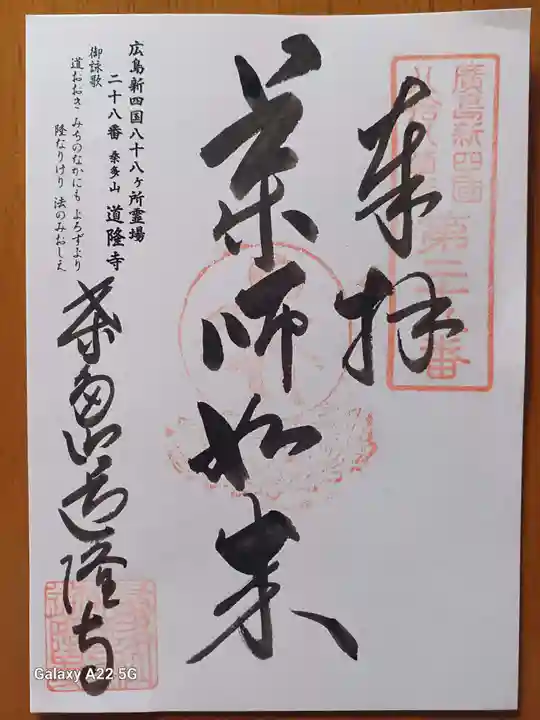 廣島新四國
八拾八ヶ所
第二十八番
奉拝
薬師如来
広島新四国八十八ヶ所霊場
二十八番 桑多山 道隆寺
御詠歌
道おおき みちのなかにも よろずより
隆なりけり 法のみおしえ
桑多山道隆寺
Galaxy A22 5G